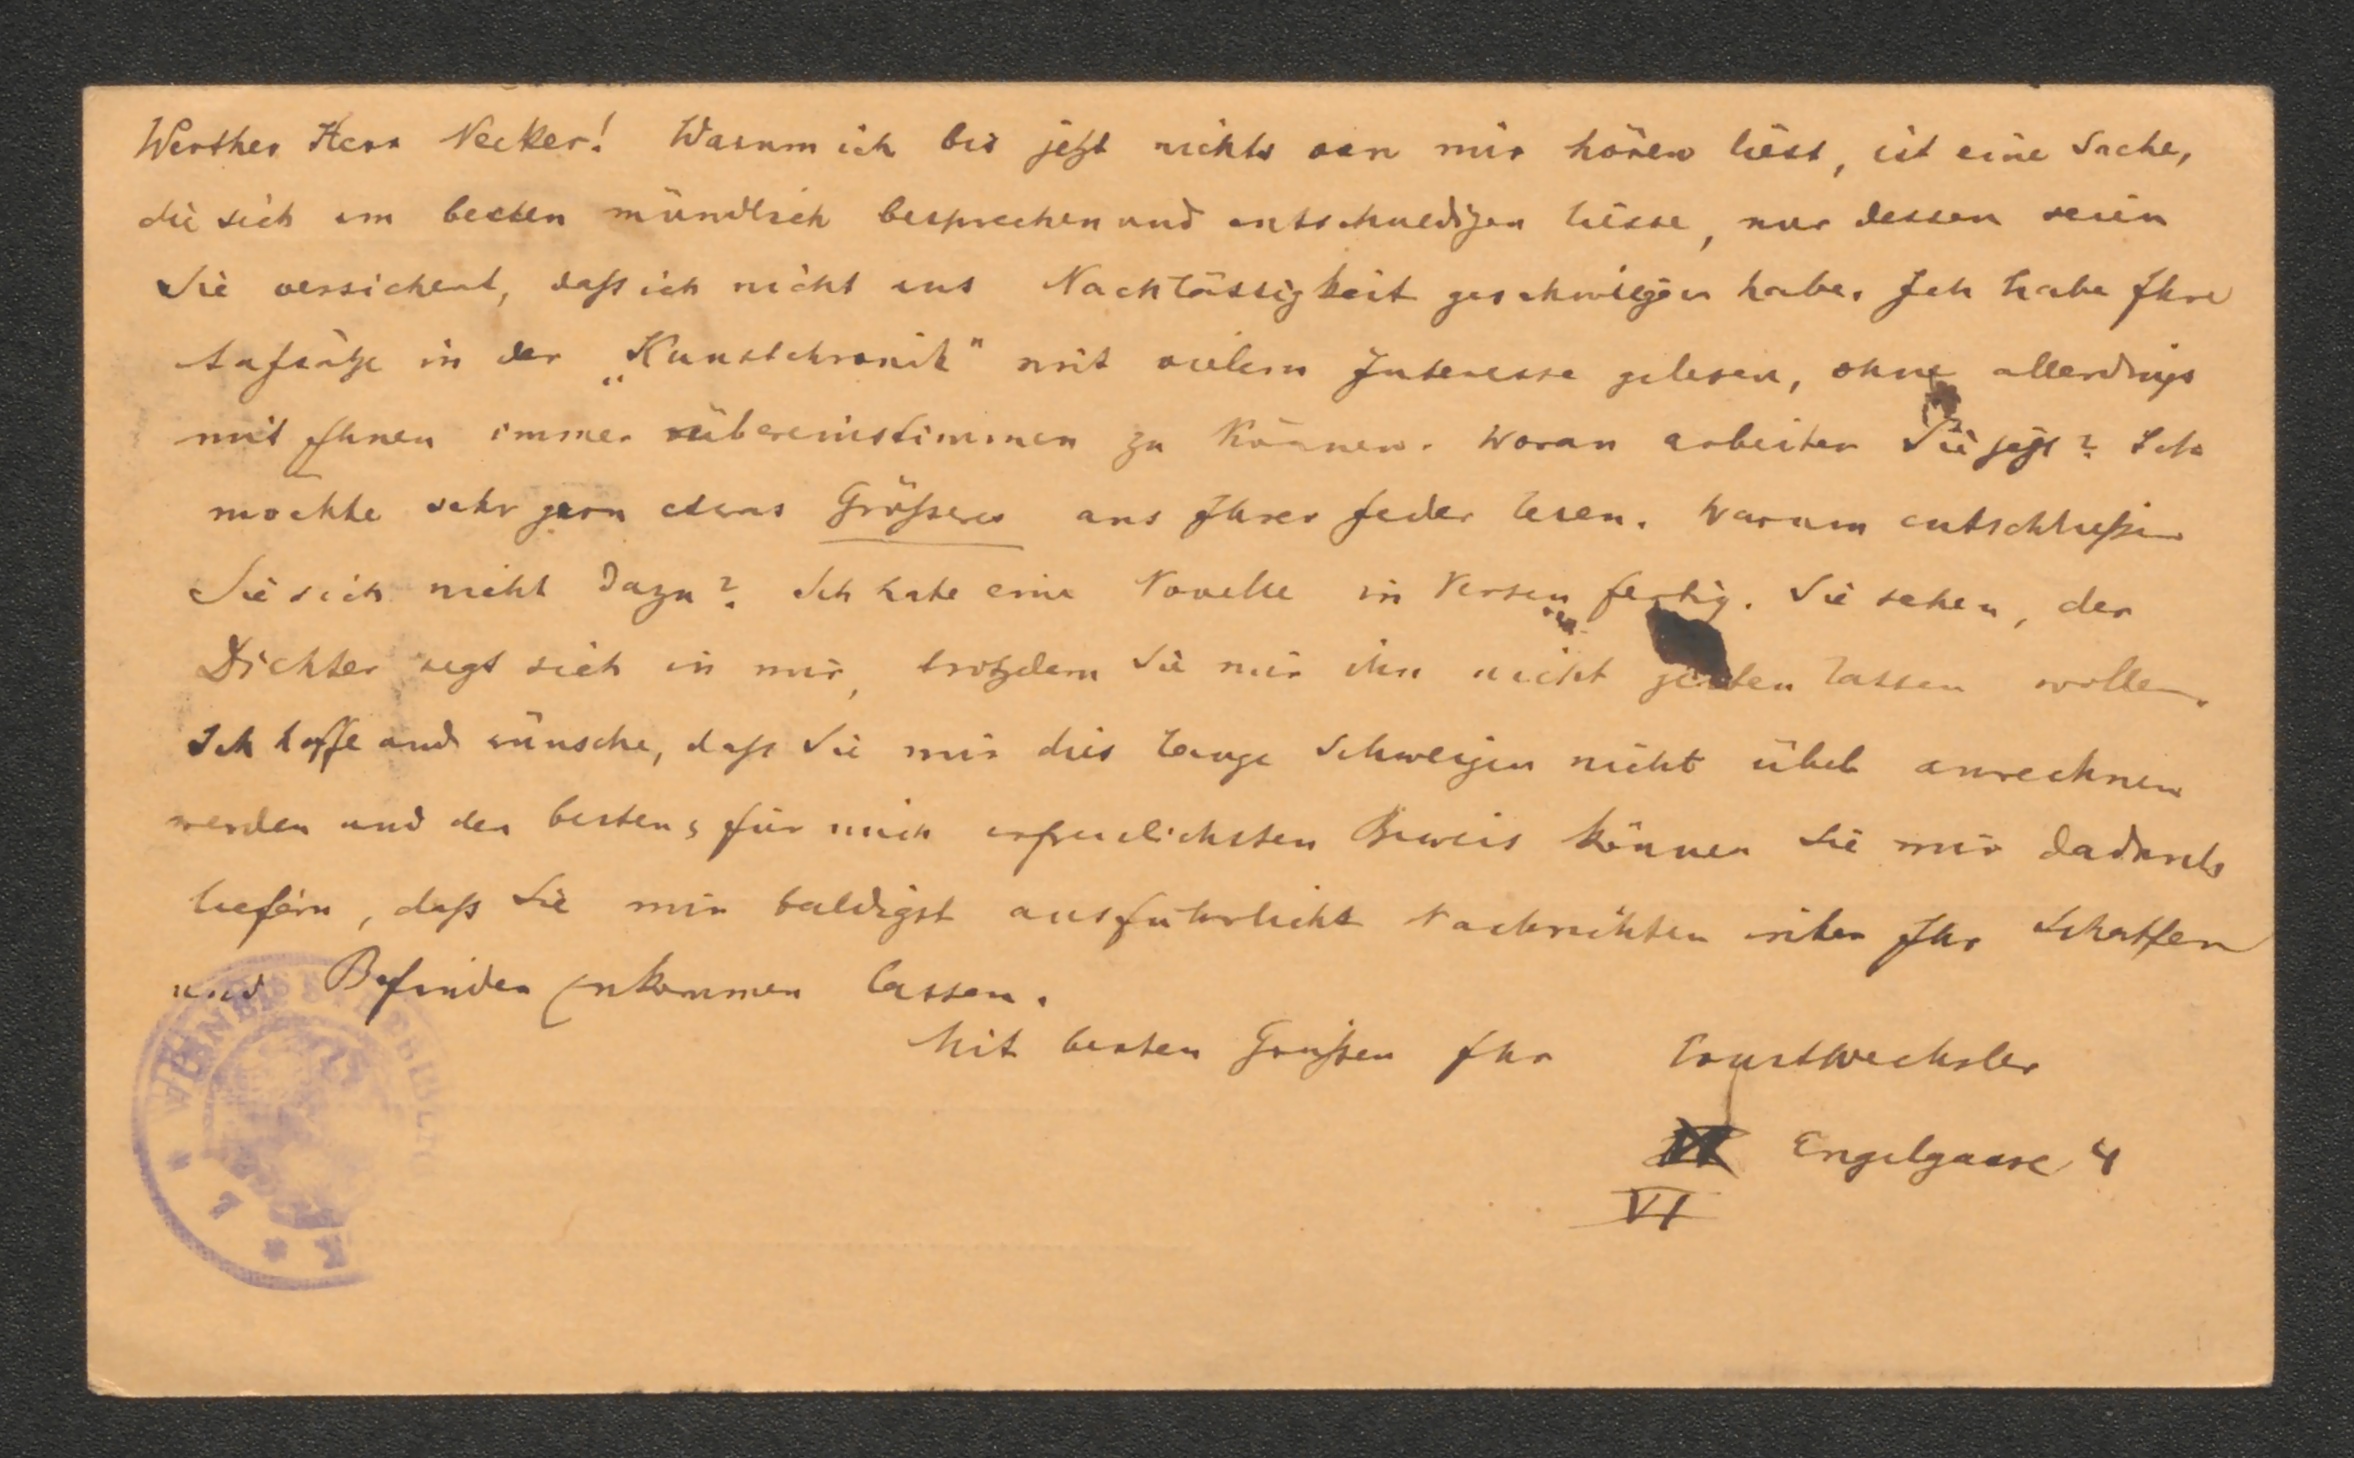 Werther Herr Necker! Warum ich bis jetzt nichts von mir hören liess, ist eine Sache,
die sich am besten mündlich besprechen und entschuldigen liesse, nur dessen seien
Sie versichert, daß ich nicht aus Nachlässigkeit geschwiegen habe. Ich habe Ihre
Aufsätze in der „Kunstchronik" mit vielem Interesse gelesen, ohne allerdings
mit Ihnen immer übereinstimmen zu können. Woran arbeiten Sie jetzt? Ich
möchte sehr gern etwas Größeres aus Ihrer Feder lesen. Warum entschließen
Sie sich nicht dazu? Ich habe eine Novelle in Versen fertig. Sie sehen, der
Dichter regt sich in mir, trotzdem Sie mir ihn nicht gelten lassen wollen.
Ich hoffe und wünsche, daß Sie mir dies lange Schweigen nicht übel anrechnen
werden und den besten, für mich erfreulichsten Beweis können Sie mir dadurch
liefern, daß Sie mir baldigst ausführliche Nachrichten über Ihr Schaffen
und Befinden zukommen lassen.
Mit besten Grüßen Ihr Ernst Wechsler
Engelgasse 4
VI
WIENER STADTBIBLIOTHEK